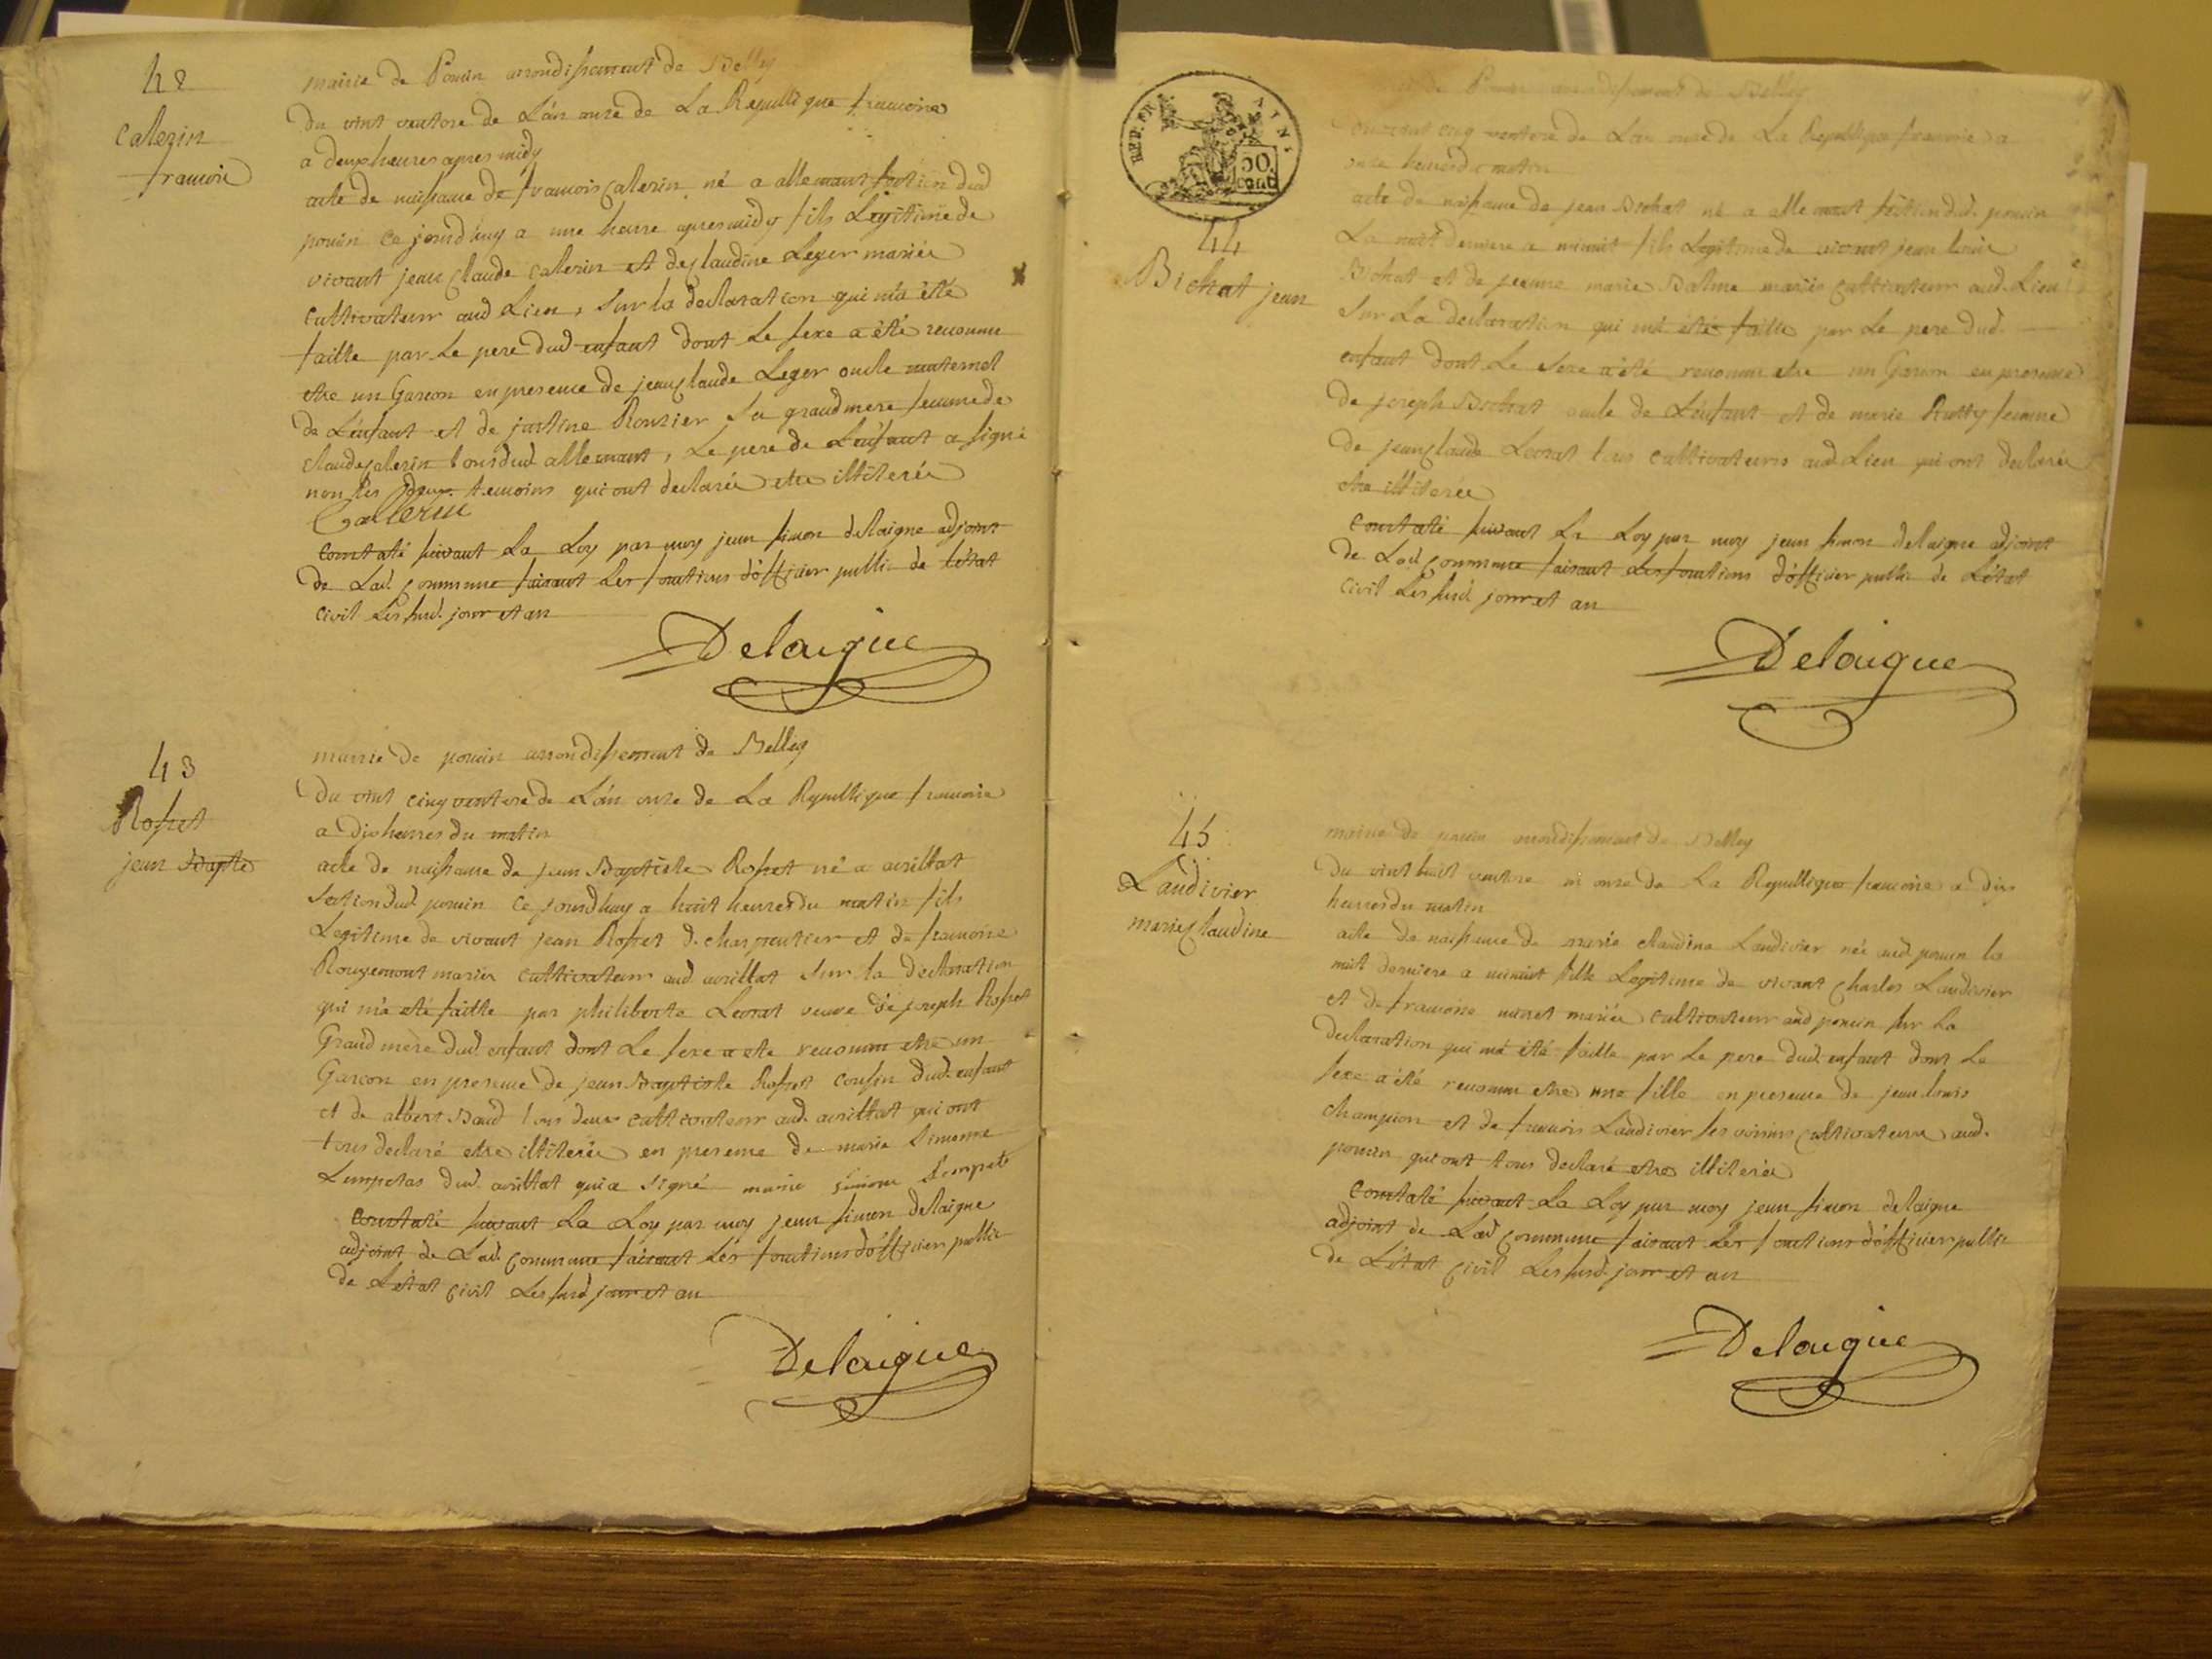 42
Calerin
francois
mairie de Poncin arrondissement de Belley
du vint ventose de L'an onze de La Republique francoise
a deux heures apres midy
acte de naissance de francois Calerin né a allemant section dud
poncin ce jourd'huy a une heure apres midy fils Legitime de
vivant jean Claude Calerin et de Claudine Leger mariée
cultivateur aud Lieu, sur la declaration qui m'a été
faitte par Le pere dud enfant dont Le sexe a été reconnu
etre un Garcon en presence de jean Claude Leger oncle maternel
de L'enfant et de justine Rouzier sa grand mere femme de
Claude Calerin tous dud allemant, Le pere de L'enfant a signé
non Les deux temoins qui ont declarée etre illiterée
Callerin
Constaté suivant La Loy par moy jean simon delaigue adjoint
de Lad. Commune faisant Les fonctions d'officier public de L'état
Civil Les susd. jour et an
Delaigue
43
Rosset
jean Bapte
mairie de poncin arrondissement de Belley
Du vint cinq ventose de L'an onze de La Republique francoise
a dix heures du matin
acte de naissance de jean Baptiste Rosset né a avrillat
section dud. poncin ce jourdhuy a huit heures du matin fils
Legitime de vivant jean Rosset d. charpentier et de francoise
Rougemont mariés cultivateur aud. avrillat sur la declaration
qui m'a eté faitte par philiberte Levrat veuve de joseph Rosset
Grand mère dud. enfant dont Le sexe a ete reconnu etre un
Garcon en presence de jean Baptiste Rosset cousin dud. enfant
et de albert Baud tous deux cultivateur aud. avrillat qui ont
tous declaré etre illiterée en presence de marie simonne
Lempetas dud. avrillat qui a signé marie simone
Constaté suivant La Loy par moy jean simon delaigue
adjoint de Lad. Commune faisant Les fonctions d'officier public
de L'état Civil Les susd jour et an
Delaigue
REP. FRA
50
cent
44
Bichat jean
de Poncin arrondissement de Belley
vint cinq ventose de L'an onze de La Republique francoise a
onze heures du matin
acte de naissance de jean Bichat né a allemant section dud. poncin
La nuit derniere a minuit fils Legitime de vivant jean Louis
Bichat et de jeanne marie Balme mariés Cultivateur aud. Lieu
Sur La declaration qui m'a été faitte par Le pere dud.
enfant dont Le sexe a été reconnu etre un Garcon en presence
de joseph Bichat oncle de L'enfant et de marie Rutty femme
de jean Claude Levrat tous cultivateurs aud. Lieu qui ont declarée
etre illiterée
Constaté suivant La Loy par moy jean simon delaigue adjoint
de Lad. Commune faisant Les fonctions d'officier public de L'état
Civil Les susd. jour et an
Delaigue
45
Landivier
marie Claudine
mairie de poncin arrondissement de Belley
Du vint huit ventose an onze de La Republique francoise a dix
heures du matin
acte de naissance de marie claudine Landivier née aud. poncin la
nuit derniere a minuit fille Legitime de vivant Charles Landivier
et de francoise mariée Cultivateur aud poncin sur La
declaration qui m'a été faitte par Le pere dud. enfant dont Le
sexe a été reconnu etre une fille en presence de jean louis
champion et de francois Landivier ses voisins Cultivateurs aud.
poncin qui ont tous declaré etre illiterée
Constaté suivant La Loy par moy jean simon delaigue
adjoint de Lad Commune faisant Les fonctions d'officier public
de L'état Civil Les susd. jour et an
Delaigue